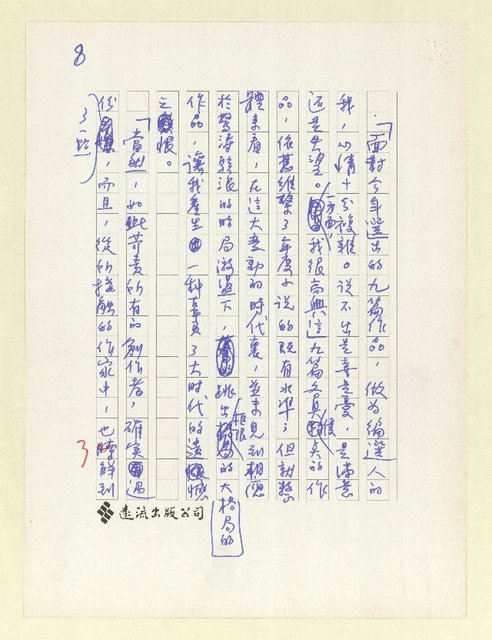 8
「面對今年選出的九篇作品,做為編選人的
我,心情十分複雜。說不出是喜是憂,是滿意
還是失望。一方面,我很高興這九篇各具優美的作
品,依舊維繫了年度小說的既有水準;但就整
體來看,在這大變動的時代裏,並未見到相應
於驚濤駭浪的時局激盪下,跳出框限的大格局的
作品,讓我產生一種辜負了大时代的遺憾
之恨。
「當然,如此苛責所有的創作者,確實過
份了一點,而且,從所接觸的作家中,也瞭解到
3
遠流出版公司